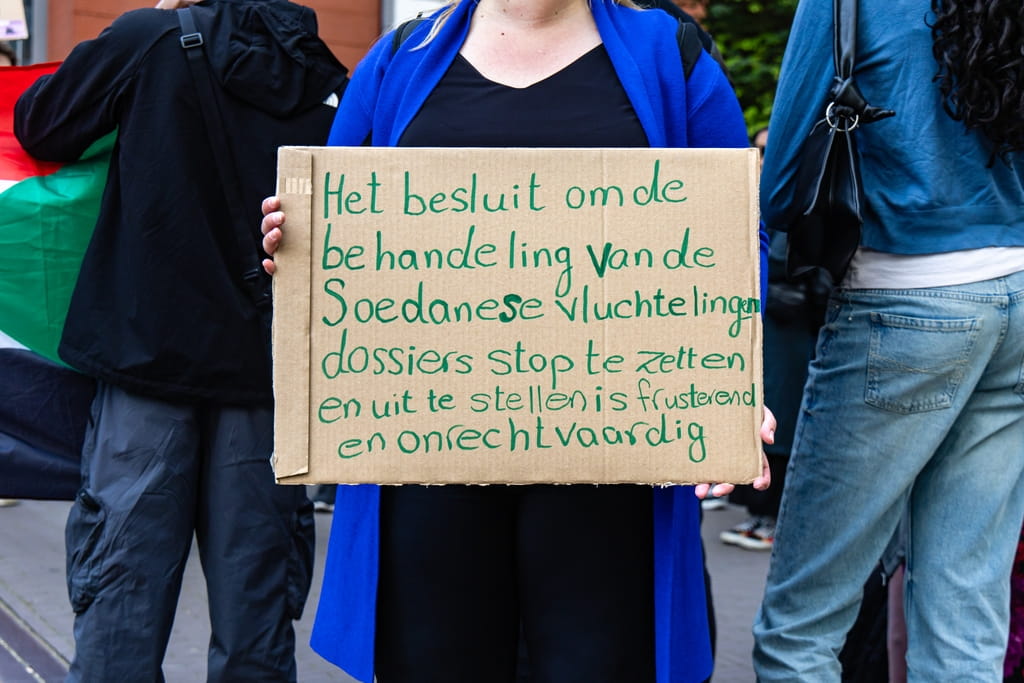 Het besluit om de
behandeling van de
Soedanese vluchtelingen
dossiers stop te zetten
en uit te stellen is frusterend
en onrechtvaardig